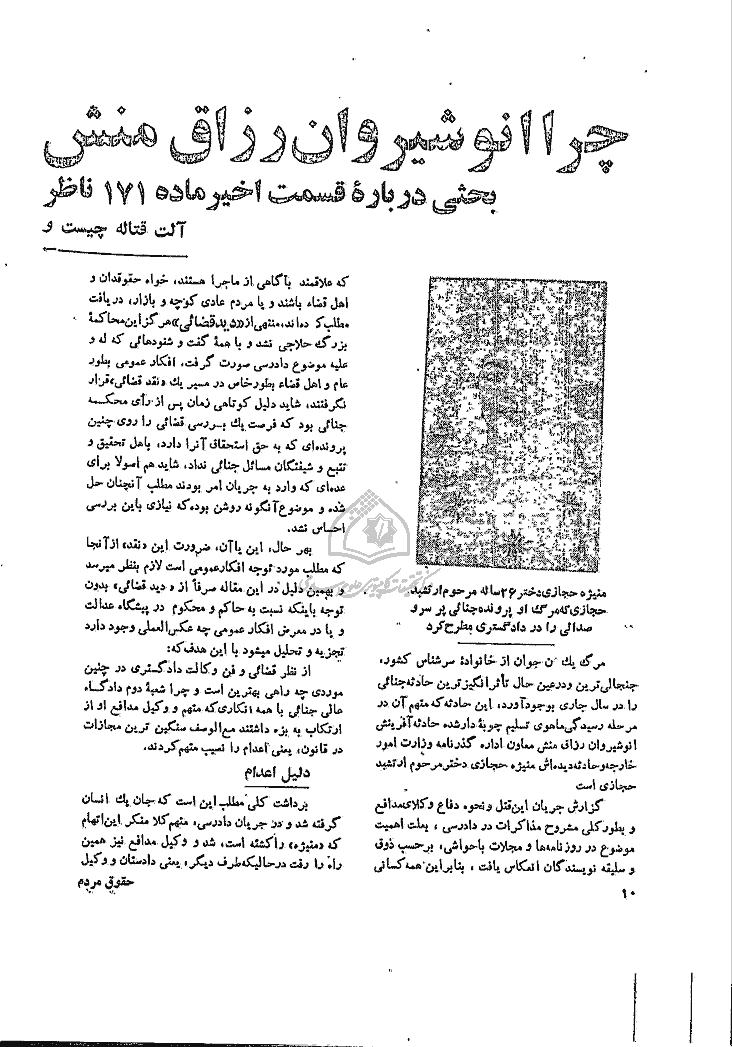 چرا انوشیروان رزاق منش
بحثی دربارهٔ قسمت اخیر ماده ۱۷۱ ناظر
آلت قتاله چیست و
منیژه حجازی دختر ۲۶ ساله مرحوم ارتشبد
حجازی که مرگ او پرونده جنائی پر سر و
صدائی را در دادگستری مطرح کرد
مرگ یك زن جوان از خانوادهٔ سرشناس کشور،
جنجالی‌ترین و درعین حال تأثر انگیز ترین حادثه جنائی
را در سال جاری بوجود آورد، این حادثه که متهم آن در
مرحله رسیدگی ماهوی تسلیم چوبهٔ دار شده حادثه آفرینش
انوشیروان رزاق منش معاون اداره گذرنامه وزارت امور
خارجه و حادثه دیده‌اش منیژه حجازی دختر مرحوم ارتشبد
حجازی است
گزارش جریان این قتل و نحوه دفاع وکلای مدافع
و بطور کلی مشروح مذاکرات در دادرسی ، بعلت اهمیت
موضوع در روزنامه‌ها و مجلات با حواشی، برحسب ذوق
و سلیقه نویسندگان انعکاس یافت ، بنابراین همه کسانی
که علاقمند بآگاهی از ماجرا هستند، خواه حقوقدان و
اهل قضاء باشند و یا مردم عادی کوچه و بازار، دریافت
مطلب کرده‌اند، منتهی از «دید قضائی» هرگز این محاکمهٔ
بزرگ حلاجی نشد و با همهٔ گفت و شنودهائی که له و
علیه موضوع دادرسی صورت گرفت، افکار عمومی بطور
عام و اهل قضاء بطور خاص در مسیر یك «نقد قضائی» قرار
نگرفتند، شاید دلیل کوتاهی زمان پس از رأی محکمه
جنائی بود که فرصت یك بررسی قضائی را روی چنین
پرونده‌ای که به حق استحقاق آنرا دارد، باهل تحقیق و
تتبع و شیفتگان مسائل جنائی نداد، شاید هم اصولا برای
عده‌ای که وارد به جریان امر بودند مطلب آنچنان حل
شده و موضوع آنگونه روشن بوده که نیازی باین بررسی
احساس نشد.
بهر حال، این یا آن، ضرورت این «نقد» از آنجا
که مطلب مورد توجه افکار عمومی است لازم بنظر میرسد
و بهمین دلیل در این مقاله صرفاً از « دید قضائی» بدون
توجه باینکه نسبت به حاکم و محکوم در پیشگاه عدالت
و یا در معرض افکار عمومی چه عکس‌العملی وجود دارد
تجزیه و تحلیل میشود با این هدف که:
از نظر قضائی و فن وکالت دادگستری در چنین
موردی چه راهی بهترین است و چرا شعبهٔ دوم دادگاه
عالی جنائی با همه انکاری که متهم و وکیل مدافع او از
ارتکاب به بزه داشتند مع‌الوصف سنگین ترین مجازات
در قانون، یعنی اعدام را نصیب متهم کردند.
دلیل اعدام
برداشت کلی مطلب این است که جان یك انسان
گرفته شد و در جریان دادرسی، متهم کلا منکر این اتهام
که «منیژه» را کشته است، شد و وکیل مدافع نیز همین
راه را رفت در حالیکه طرف دیگر، یعنی دادستان و وکیل
حقوق مردم
۱۰